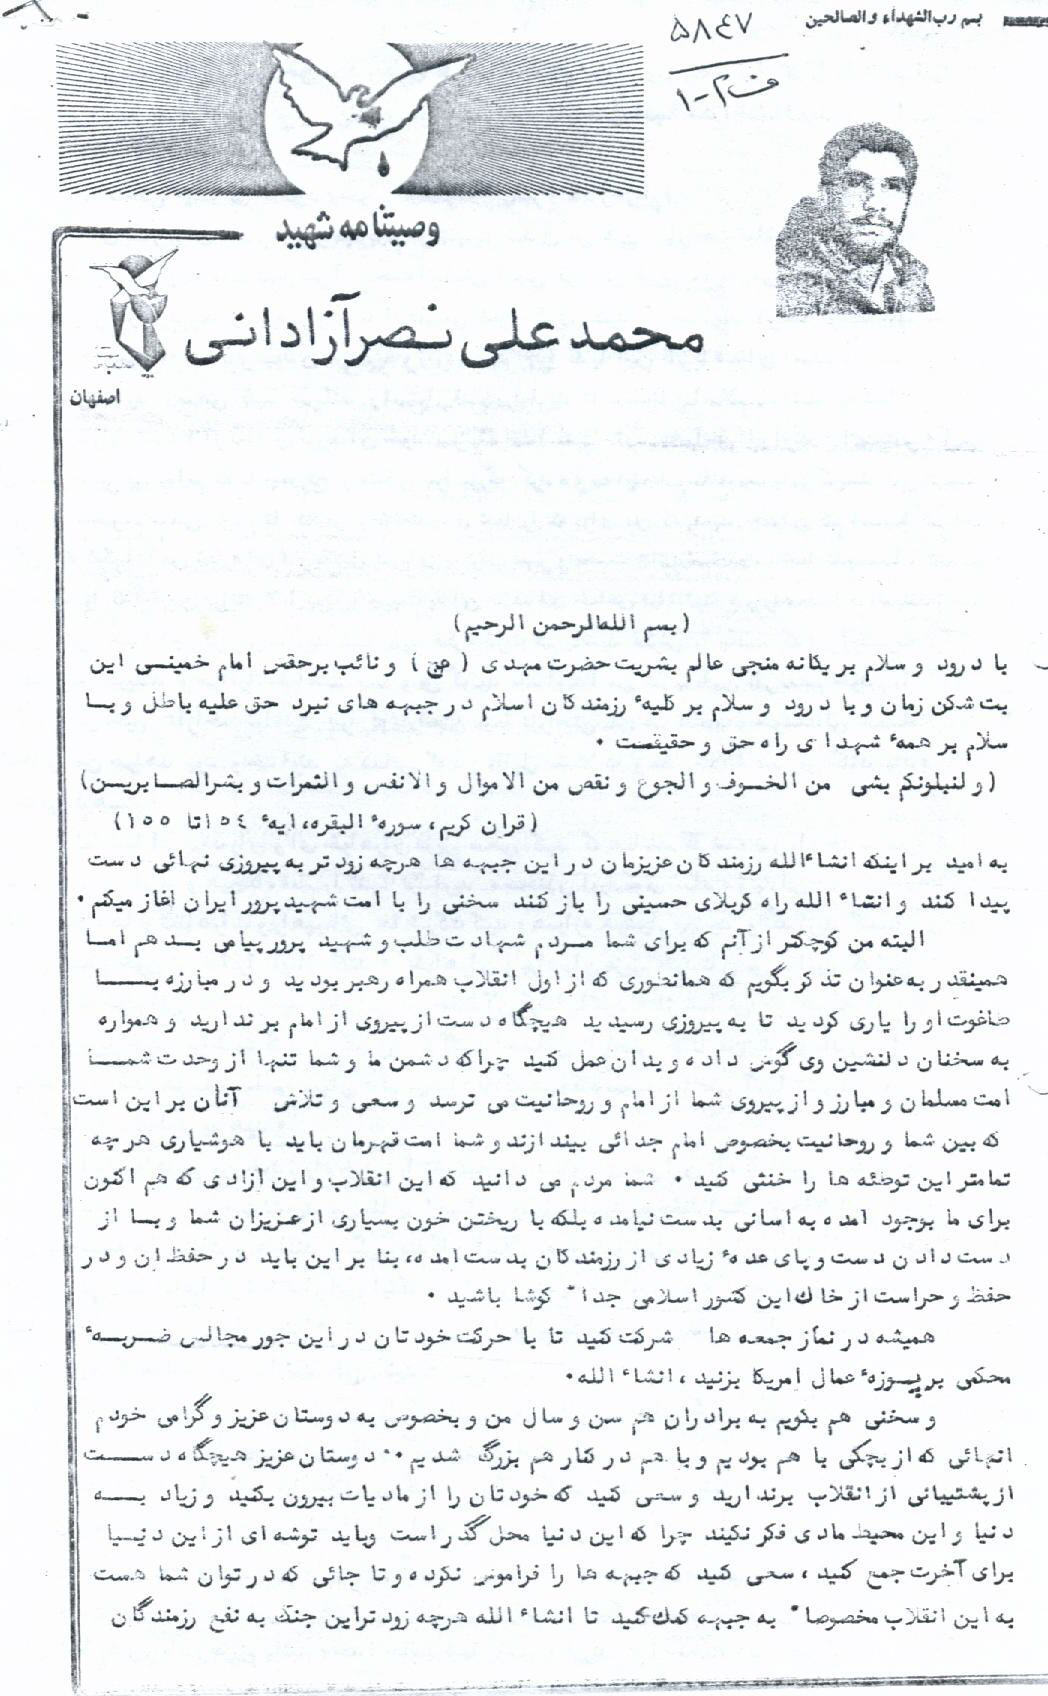 بسم رب الشهداء والصالحین
۵۸۴۷
وصیتنامه شهید
محمد علی نصرآزادانی
اصفهان
(بسم الله الرحمن الرحیم)
با درود و سلام بر یگانه منجی عالم بشریت حضرت مهدی (عج) و نائب برحقش امام خمینی این
بت شکن زمان و با درود و سلام بر کلیهٔ رزمندگان اسلام در جبهه های نبرد حق علیه باطل و با
سلام بر همهٔ شهدای راه حق و حقیقت .
(ولنبلونکم بشی من الخوف والجوع و نقص من الاموال والانفس والثمرات و بشرالصابریـن)
(قران کریم، سورهٔ البقره، ایهٔ ۱۵۴ تا ۱۵۵)
به امید بر اینکه انشاءالله رزمندگان عزیزمان در این جبهه ها هرچه زودتر به پیروزی نهائی دست
پیدا کنند وانشاءالله راه کربلای حسینی را باز کنند سخنی را با امت شهید پرور ایران اغاز میکنم .
البته من کوچکتر از آنم که برای شما مـردم شهادت طلب و شهید پرور پیامی بـدهم امـا
همینقدر به عنوان تذکر بگویم که همانطوری که از اول انقلاب همراه رهبر بودید و در مبارزه بـا
طاغوت او را یاری کردید تا به پیروزی رسیدید هیچگاه دست از پیروی از امام برندارید و همواره
به سخنان دلنشین وی گوش داده و بدان عمل کنید چراکه دشمن ما و شما تنها از وحدت شمـا
امت مسلمان و مبارز و از پیروی شما از امام و روحانیت می ترسد و سعی و تلاش آنان بر این است
که بین شما و روحانیت بخصوص امام جدائی بیندازند و شما امت قهرمان باید با هوشیاری هرچه
تمامتر این توطئه ها را خنثی کنید . شما مردم می دانید که این انقلاب و این ازادی که هم اکنون
برای ما بوجود امده به اسانی بدست نیامده بلکه با ریختن خون بسیاری از عزیزان شما و بـا از
دست دادن دست و پای عدهٔ زیادی از رزمندگان بدست امده، بنا بر این باید در حفظ ان و در
حفظ و حراست از خاک این کشور اسلامی جداً کوشا باشید .
همیشه در نماز جمعه ها شرکت کنید تا با حرکت خودتان در این جور مجالس ضـربـهٔ
محکمی بر پـوزهٔ عمال امریکا بزنید ، انشاءالله .
و سخنی هم بگویم به برادران هم سن و سال من و بخصوص به دوستان عزیز و گرامی خودم
انهائی که از بچگی با هم بودیم و با هم در کنار هم بزرگ شدیم . دوستان عزیز هیچگاه دسـت
از پشتیبانی از انقلاب برندارید و سعی کنید که خودتان را از مادیات بیرون بکنید و زیاد بـه
دنیا و این محیط مادی فکر نکنید چرا که این دنیا محل گذر است وباید توشه ای از این دنیـا
برای آخرت جمع کنید ، سعی کنید که جبهه ها را فراموش نکرده و تا جائی که در توان شما هست
به این انقلاب مخصوصاً به جبهه کمک کنید تا انشاءالله هرچه زودتر این جنگ به نفع رزمندگان